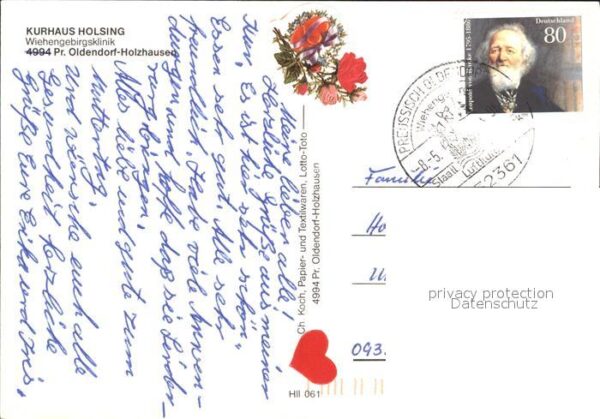 KURHAUS HOLSING
Wiehengebirgsklinik
4994 Pr. Oldendorf-Holzhausen
Meine lieben alle!
Herzliche Grüße aus meiner
Kur. Es ist hier sehr schön
Essen sehr gut. Alle sehr
freundlich. Habe viele Anwen-
dungen und hoffe daß sie Linder-
ung bringen.
Alles liebe und gute zum
Muttertag.
Und wünsche euch alle
Gesundheit herzliche
Grüße Eure Erika und Iris.
Ch. Koch, Papier- und Textilwaren, Lotto-Toto
4994 Pr. Oldendorf-Holzhausen
HII 061
Deutschland
80
Leopold von Ranke 1795-1886
PREUSSISCH OLDENDORF
-8.-5.
Staatl
Luftkur
52361
Familie
093.
privacy protection
Datenschutz